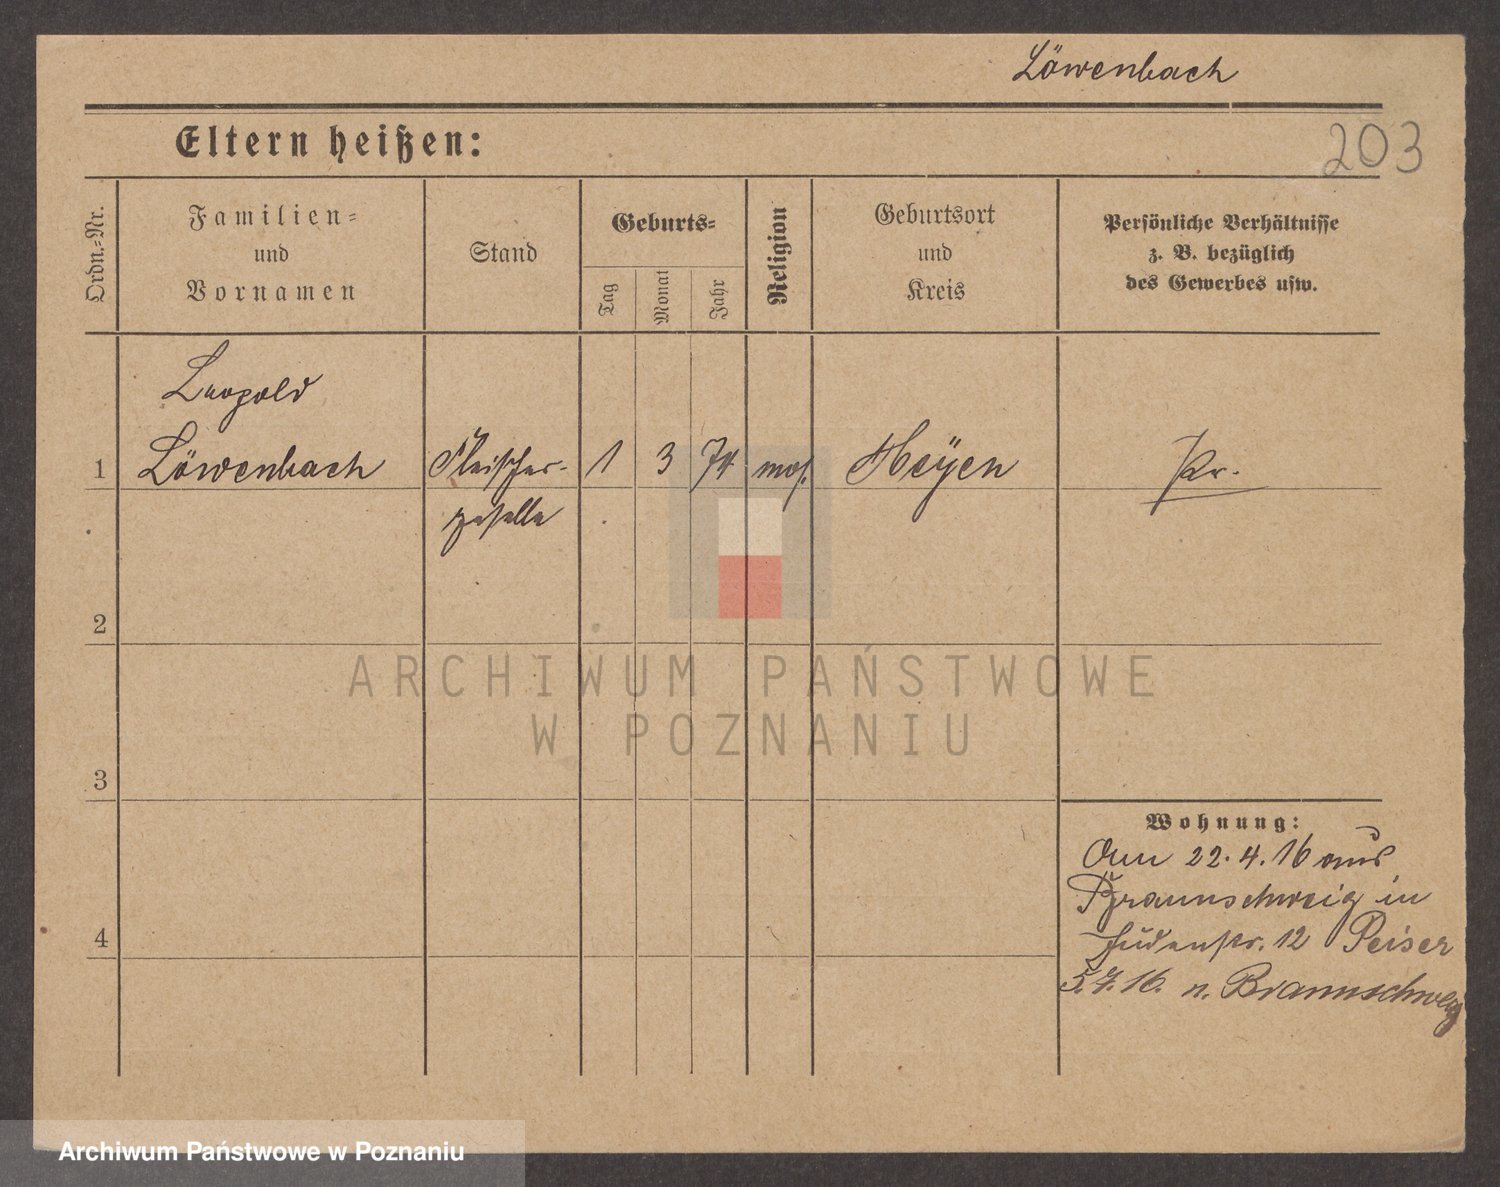 Löwenbach
203
Eltern heißen:
Ordn.-Nr.
Familien-
und
Vornamen
Stand
Geburts-
Tag
Monat
Jahr
Religion
Geburtsort
und
Kreis
Persönliche Verhältnisse
z. B. bezüglich
des Gewerbes usw.
Leopold
1 Löwenbach Fleischer- 1 3 74 mos. Heÿen Pr.
geselle
2
3
4
Wohnung:
Am 22.4.16 aus
Braunschweig in
Judenstr. 12 Peiser
5.7.16. n. Braunschweig
ARCHIWUM PAŃSTWOWE
W POZNANIU
Archiwum Państwowe w Poznaniu